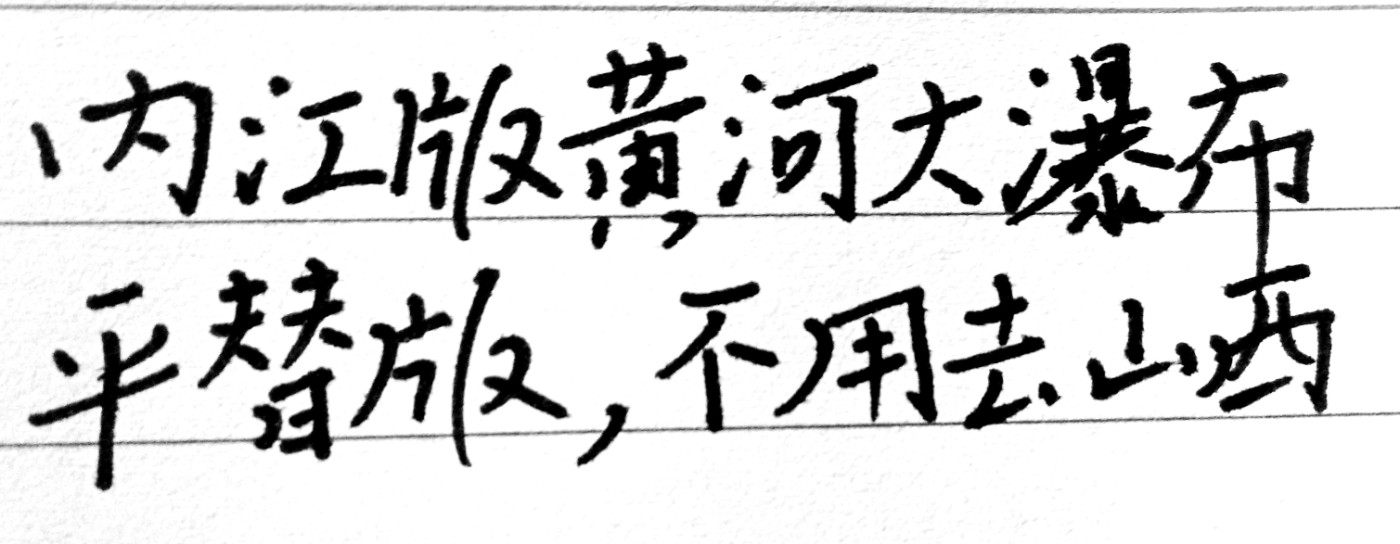 内江版黄河大瀑布
平替版,不用去山西